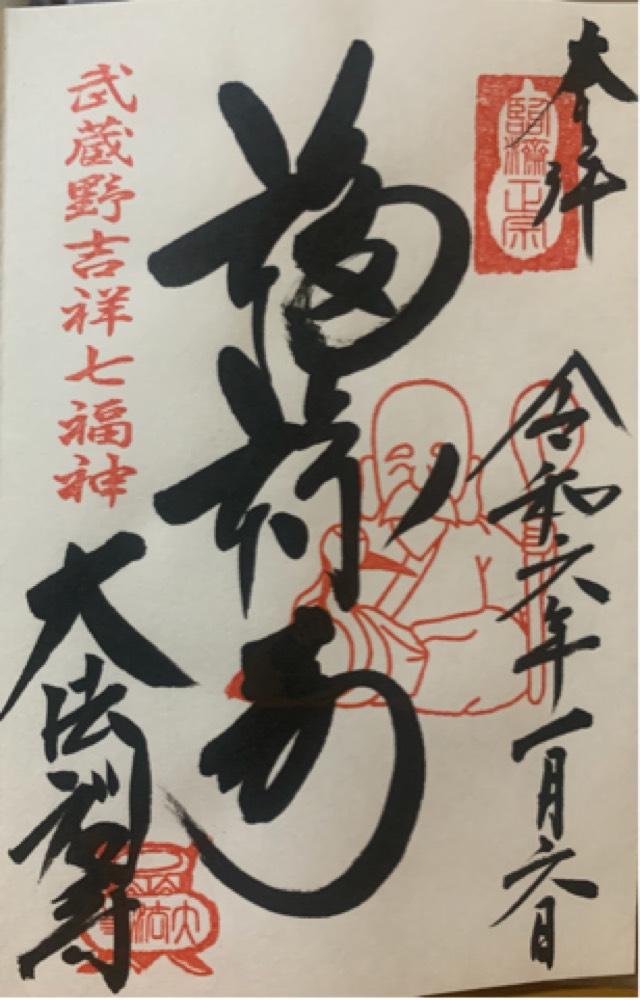 奉拝
臨済正宗
令和六年一月六日
福禄寿
武蔵野吉祥七福神
大法禅寺